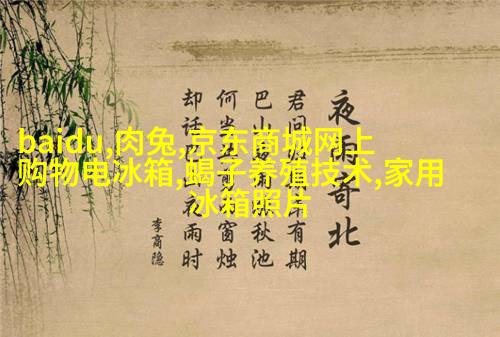 baidu,肉兔,京东商城网上
购物电冰箱,蝎子养殖技术,家用
冰箱照片
夜雨寄北
君问有期
巴山秋池
何当窗烛
却话夜雨时
李商隐